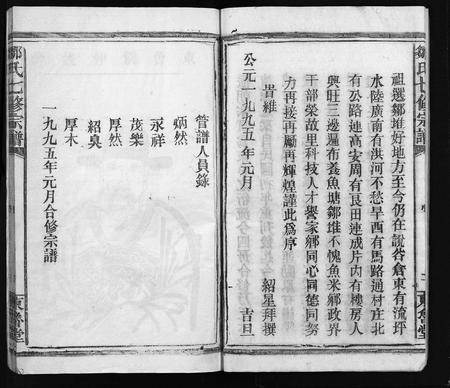 鄒氏七修宗譜
祖選鄒堆好地方至今仍在説
水陸廣南有洪河不愁旱西有馬路通材庄北
有公路連高安周有良田連成片内有樓房人
興旺三邊遍布養魚塘鄒堆不愧魚米鄉政界
干部榮故里科技人才譽家鄉同心同德同努
力再接再勵再輝煌謹此爲序
紹星拜撰
公元一九九五年元月
旹維
吉旦
管譜人員錄
炳然
永祥
茂樂
厚然
紹臭
厚木
一九九五年元月合修宗譜
鄒氏七修宗譜
東魯堂
東魯堂